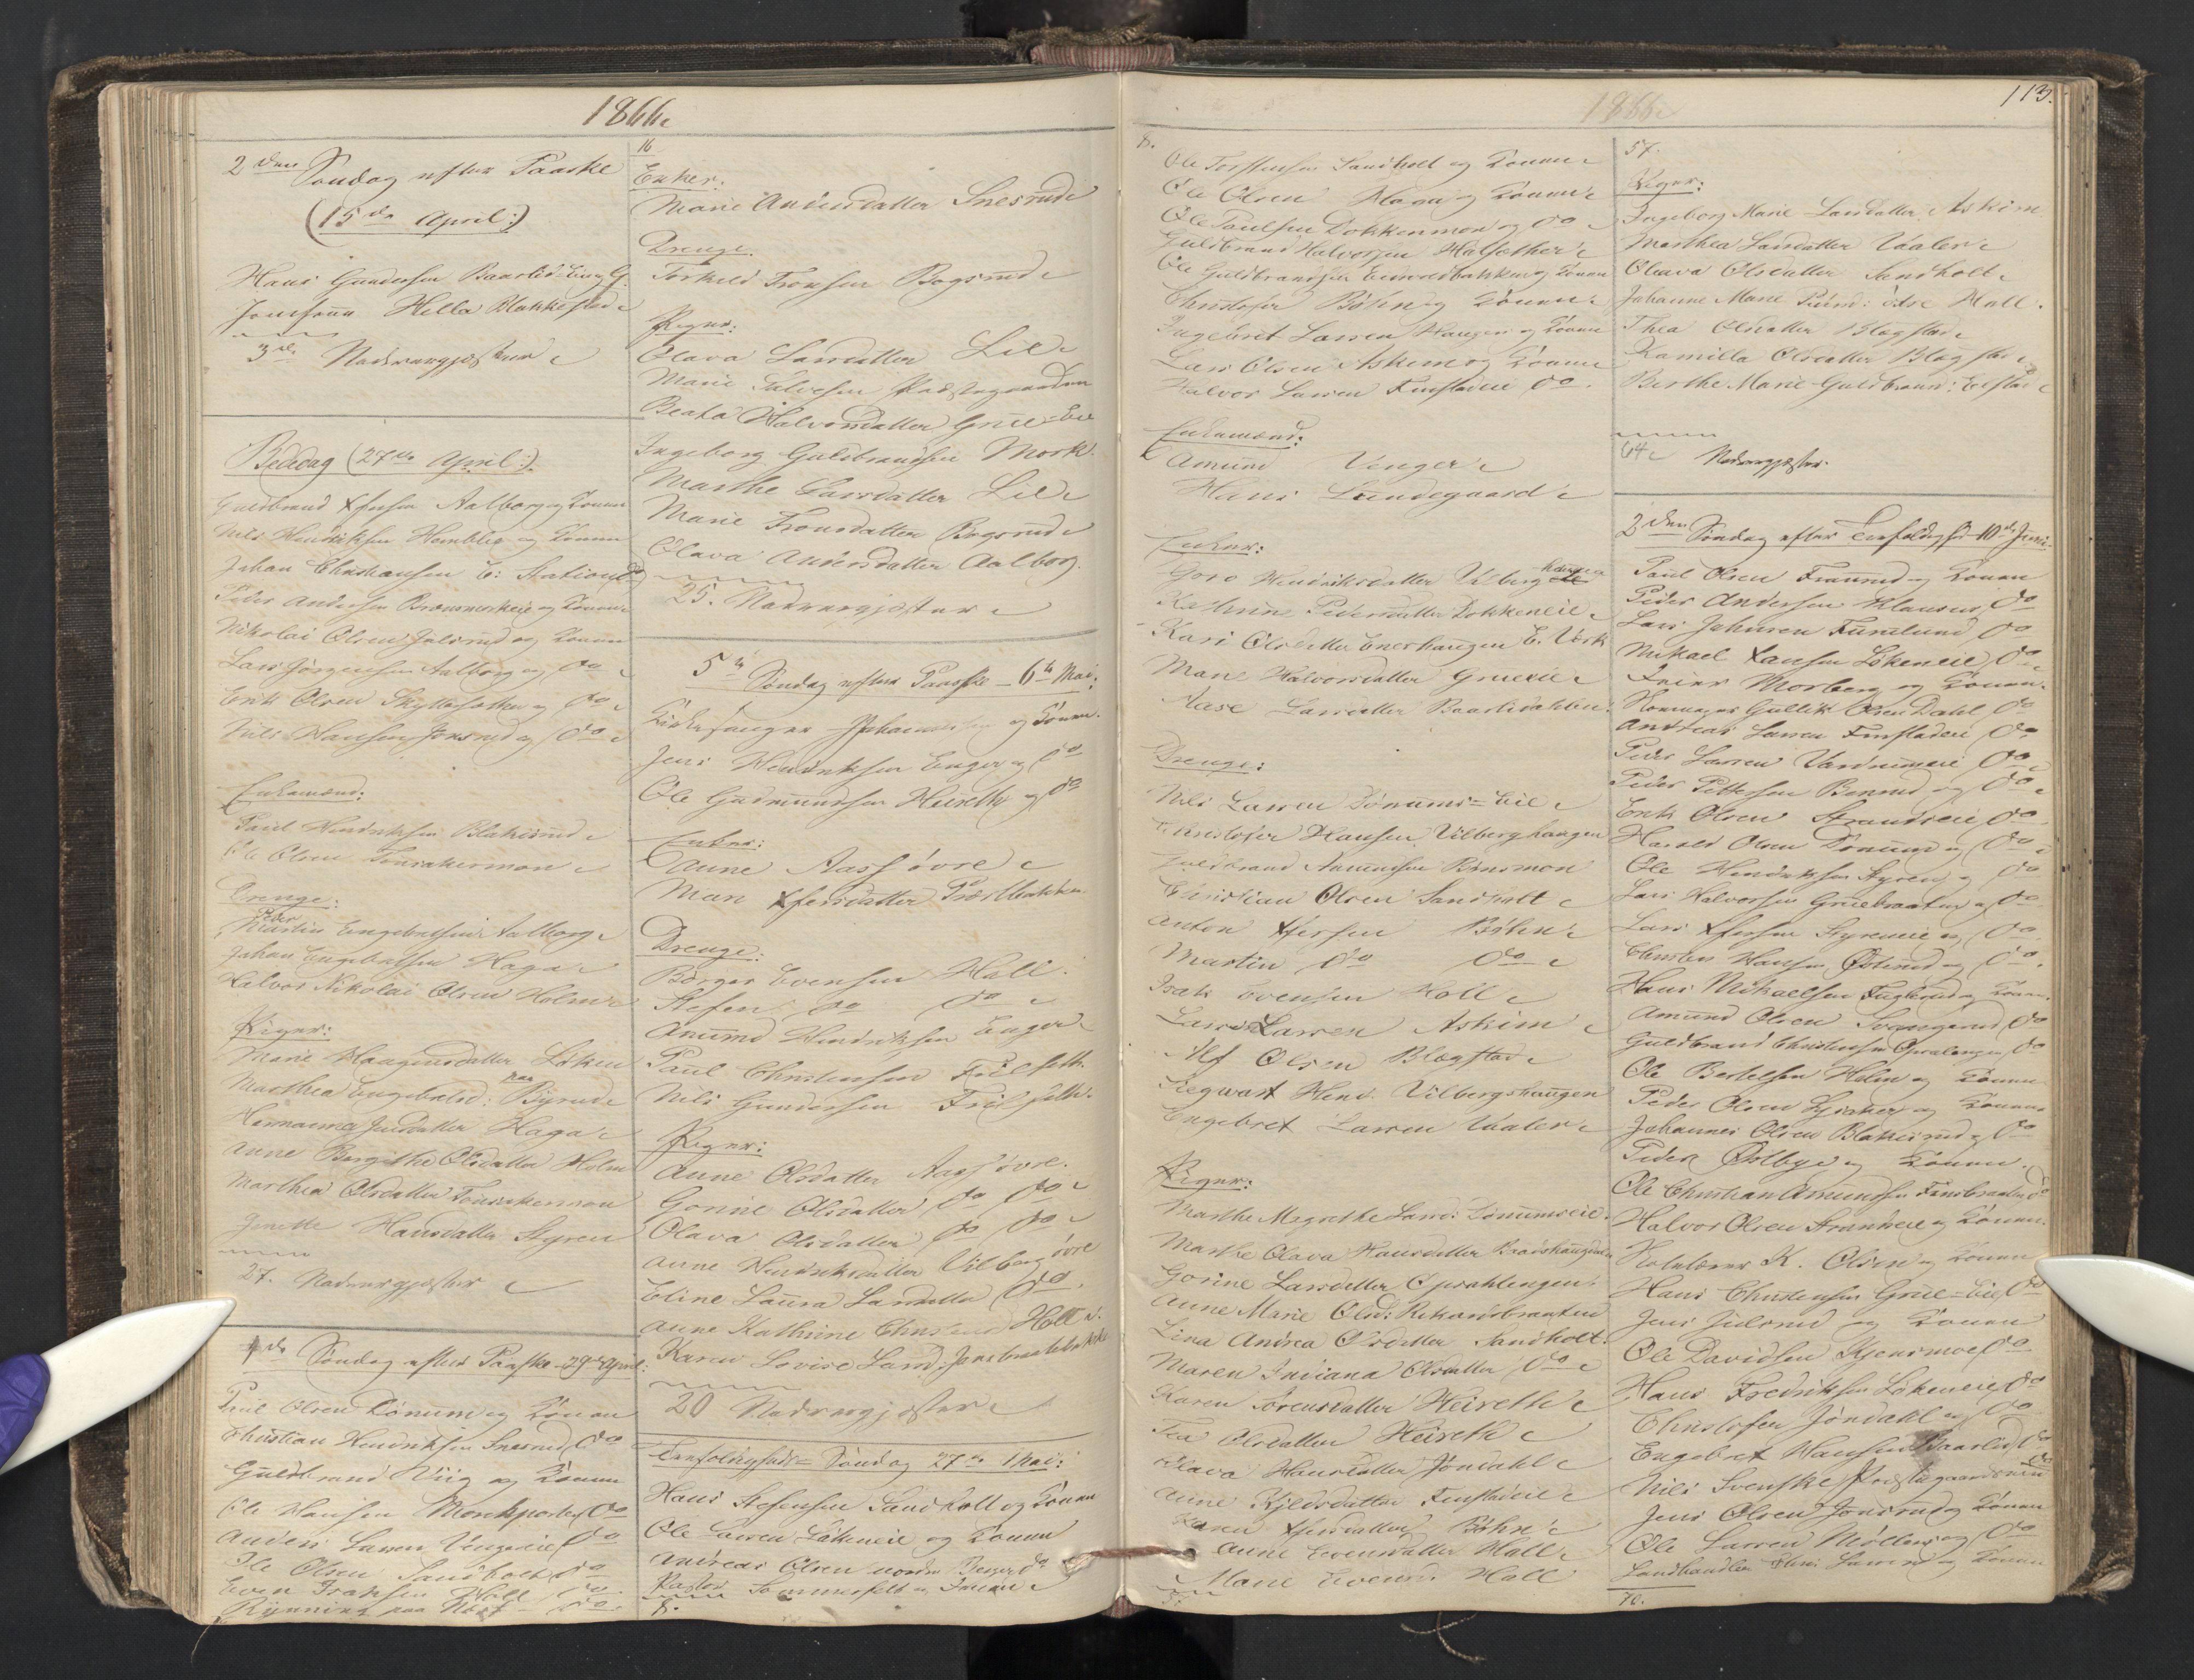 1866.
2den Søndag efter Paaske
(15de April:)
Hans Gundersen Baarlid Eie g G.
Jomfruu Hella Blakkestad
3de Nadvergjæster
Bededag (27de April:)
Guldbrand Xfersen Aalborg og Konen
Nils Hendriksen Hemblie og Konen
Johan Christiansen E: Station
Peder Andersen Brænsmorkeie og Konen
Nikolai Olsen Julsrud og Konen
Lars Jørgensen Aalborg og do
Erik Olsen Skyttesetter og do
Nils Hansen Jonsrud og do
Enkemænd:
Paul Hendriksen Blakisrud
Ole Olsen Tonsakermon
Drenge:
Peder
Martin Engebretsen Aalborg
Johan Engebretsen Haga
Halvor Nikolai Olsen Holm
Piger:
Marie Haagensdatter Løken
Marthea Engebretsd: Byrud
Hermana Jensdatter Haga
Anne Bergithe Olsdatter Holm
Marthea Olsdatter Tonsakermon
Jenette Hansdatter Styren
27. Nadvergjæster
4de Søndag efter Paaske 29de April:
Paul Olsen Dønnum og Konen
Christian Hendriksen Snesrud do
Guldbrand Viig og Konen
Ole Hansen Morkporten do
Anders Larsen Vengereie do
Ole Olsen Sandholt do
Even Isaksen Holl do
Rynning paa Næs do
16
Enker:
Marie Andersdatter Snesrud
Drenge.
Torkild Tronsen Bogsrud
Piger:
Olava Larsdatter Lie
Marie Halvesen Præstegaarden
Beata Halvorsdatter Grue-Eie
Ingeborg Guldbrandsen Mork
Marthe Larsdatter Lie
Marie Tronsdatter Bogsrud
Olava Andersdatter Aalborg.
25. Nadvergjæster
5te Søndag efter Paaske - 6te Mai:
Kirkesanger Johannesen og Konen.
Jens Hendriksen Enger og do
Ole Gudmundsen Heireth og do
Enker:
Anne Aass øvre
Mari Xfersdatter Præstbakken
Drenge:
Børger Evensen Holl.
Stefen do do
Amund Hendriksen Enger
Paul Christensen Frilseth
Nils Gundersen Frilseth.
Piger:
Anne Olsdatter Aass øvre.
Gorine Olsdatter do do
Olava Olsdatter do do
Anne Hendriksdatter Vilberg øvre
Eline Laura Larsdatter do.
Anne Kathrine Christensd Holl
Karen Lovise Larsd: Jonsbraatebakk
20 Nadvergjæster
Trefoldigheds-Søndag 27de Mai:
Hans Stefensen Sandholt og Konen
Ole Larsen Løkeneie og Konen
Andreas Olsen nordre Venger do
Pastor Sommerfelt og Fruen
8.
1866
113.
8.
Ole Torstensen Sandholt og Konen
Ole Olsen Moen og Konen
Ole Paulsen Dokkenmon og do
Guldbrand Halvorsen Halsether
Ole Guldbrandsen Eidsvoldbakken og Konen
Christofer Bøhn og Konen
Ingebret Larsen Haugen og Konen
Lars Olsen Askim og Konen
Halvor Larsen Finstadeie do.
Enkemænd:
Amund Venger
Hans Lundegaard
Enker:
Goro Hendriksdatter Vilberg
Kathrine Pedersdatter Dokkeneie
Kari Olsdatter Enerhaugen E. Værk
Mari Halvorsdatter Grueeie
Aase Larsdatter Baarlidahlen
Drenge:
Nils Larsen Dønnums-Eie
Christofer Hansen Vilberghaugen
Guldbrand Amundsen Bønsmon
Christian Olsen Sandholt
Anton Xfersen Bøhn
Martin do do
Isak Evensen Holl
Lars Larsen Askim
Alf Olsen Blegstad
Siegwart Hend. Vilbergshaugen
Engebret Larsen Vaaler
Piger:
Marthe Magrethe Larsd: Dønnumseie.
Marthe Olava Hansdatter
Gorine Larsdatter Opsahlengen
Anne Marie Olsd: Rikardsbraaten
Lina Andrea Olsdatter Sandholt.
Maren Indiana Olsdatter do
Karen Sørensdatter Heireth
Tea Olsdatter Heireth
Olava Hansdatter Jøndahl
Anne Kjeldsdatter Finstadeie
Karen Xfersdatter Bøhn
Anne Evensdatter Holl
Marie Evensd: Holl
57.
57.
Piger:
Ingeborg Marie Larsdatter Askim
Marthea Larsdatter Vaaler
Oleava Olsdatter Sandholt
Johanne Marie Svend: øvre Holl.
Thea Olsdatter Blegstad
Kamilla Olsdatter Blegstad
Berthe Marie Guldbrand: Eifstad
64 Nadvergjæster.
2den Søndag efter Trefoldighed 10de Juni.
Paul Olsen Fremrud og Konen
Peder Andersen Klausrud do
Lars Johnsen Furulund do
Mikael Hansen Løkeneie do
Morberg og Konen.
Gullik Olsen Dahl do
Andreas Larsen Finstadeie do
Peder Larsen Vardrumeie do
Peder Pettersen Bonrud og do
Erik Olsen Strandeie do
Harald Olsen Dønnum og do
Ole Hendriksen Styren og do
Lars Halvorsen Gruebraaten og do
Lars Xfersen Styreneie og do
Christen Hansen Østerud og do.
Hans Mikaelsen Fuglerud og Konen.
Amund Olsen Svangerud do
Guldbrand Christensen Opsalengen do
Ole Bertelsen Holm og Konen
Peder Olsen og Konen
Johannes Olsen Blakisrud og do
Peder Østbye og Konen.
Ole Christian Amundsen Finsbraaten do
Halvor Olsen Strandeie og Konen.
Skolelærer K. Olsen og Konen
Hans Christensen Grue-Eie do
Jens Julsrud og Konen
Ole Davidsen Kjensmoe do
Hans Fredriksen Løkeneie do
Christofer Jøndahl og do
Engebret Hansen Baarlid do
Nils Svenske Præstegaardseie do
Jens Olsen Jonsrud og Konen
Ole Larsen Møllen og do
Landhandler Larsen og Konen
70.